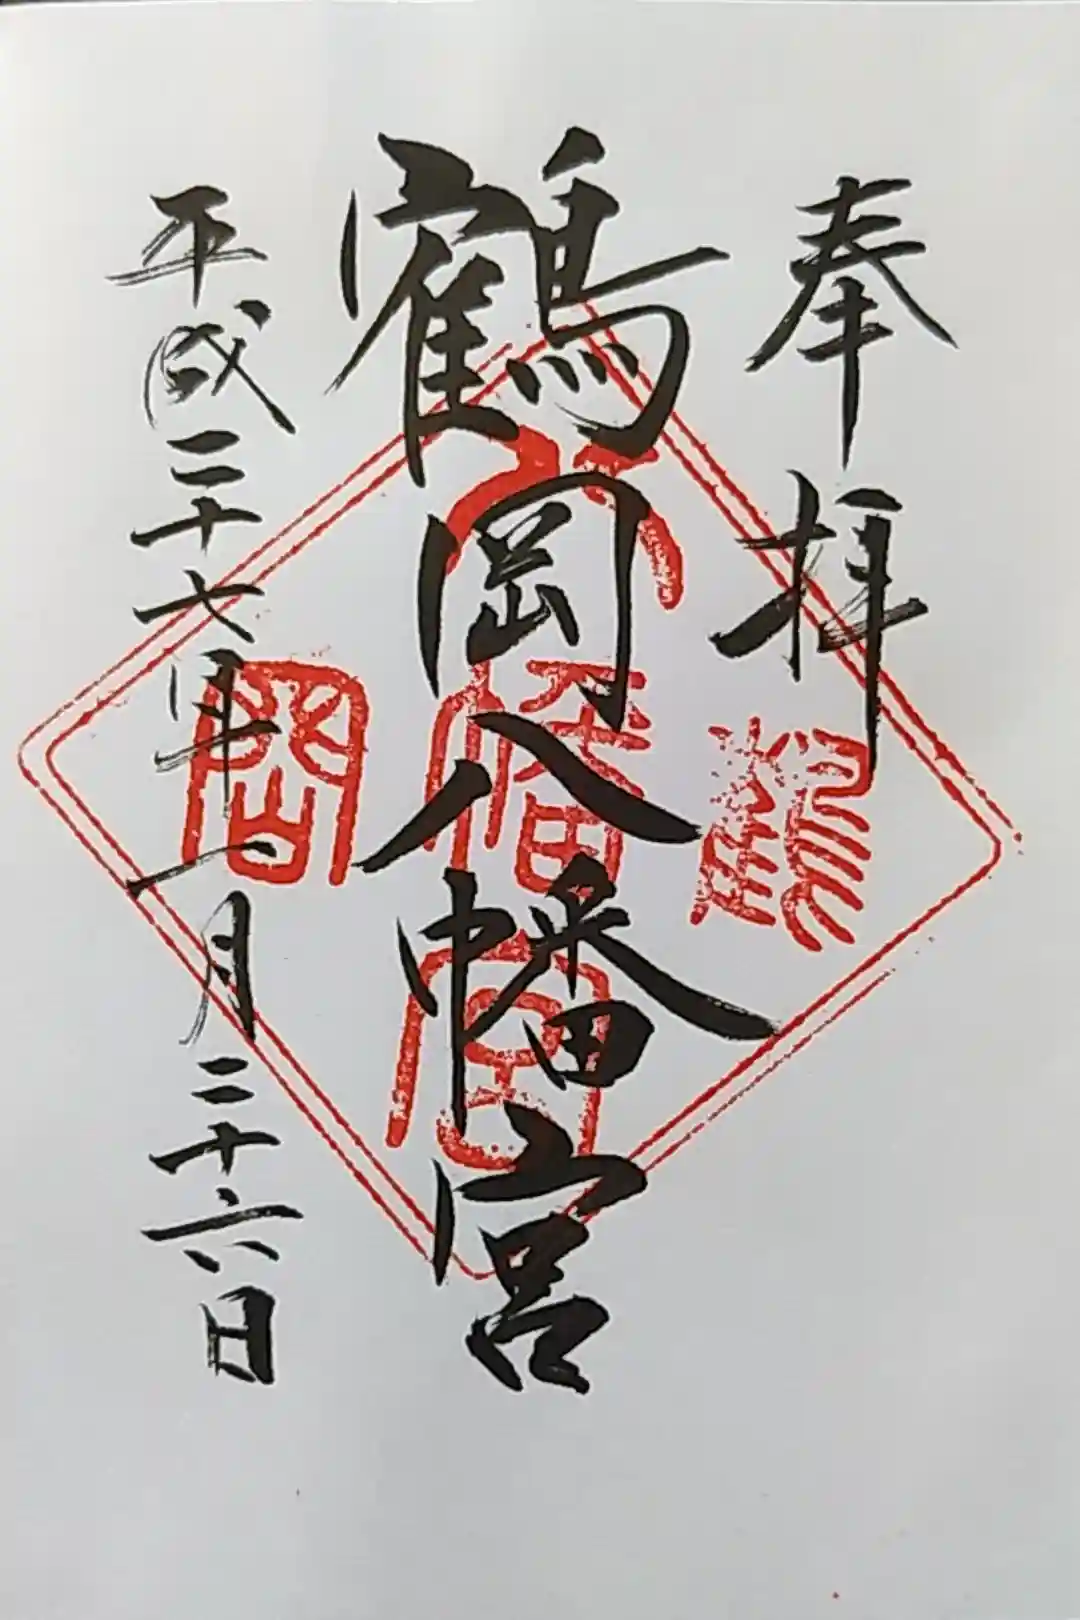 奉拝
鶴岡八幡宮
平成二十七年一月二十六日
鶴岡八幡宮